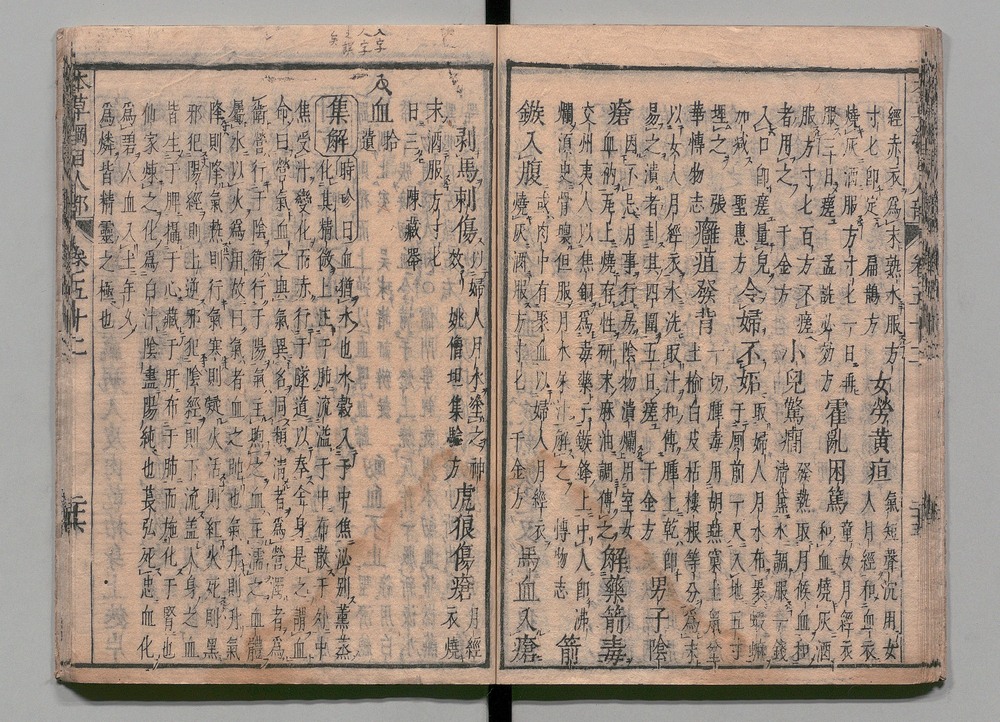 經赤衣爲末熟水服方
寸七即定 扁鵲方
女勞黃疸
氣短聲沉用女
人月經和血衣
燒灰酒服方寸七一日再
服三十日瘥 孟詵必効方
霍亂困篤
童女月經衣
和血燒灰酒
服方寸七百方不瘥
者用之 千金方
小兒驚癎
發熱取月候血和
青黛水調服一錢
入口即瘥量兒
加減 聖惠方
令婦不妬
取婦人月水布裹蝦蟇
于厠前一尺入地五寸
埋之 張
華博物志
癰疽發背
一切腫毒用胡燕窠土鼠坌
土楡白皮栝樓根等分爲末
以女人月經衣水洗取汁和傅腫上乾即
易之潰者封其四圍五日瘥 千金方
男子陰
瘡
因不忌月事行房陰物潰爛用室女
血衲瓦上燒存性研末麻油調傅之
解藥箭毒
交州夷人以焦銅爲毒藥于鏃鋒上中人即沸
爛須臾骨壞但服月水屎汁解之 博物志
箭
鏃入腹
或肉中有聚血以婦人月經衣
燒灰酒服方寸七 千金方
馬血入瘡
剥馬刺傷
以婦人月水塗之神
效 姚僧坦集驗方
虎狼傷瘡
月經
衣燒
末酒服方寸七
日三 陳藏器
人血
拾
遺
集解
時珍曰血猶水也水穀入于中焦泌别熏蒸
化其精微上注于肺流溢于中布散于外中
焦受汁變化而赤行于隧道以奉生身是之謂血
命曰營氣血之與氣異名同類清者爲營濁者爲
衛營行于陰衛行于陽氣主煦之血主濡之血體
屬水以火爲用故曰氣者血之帥也氣升則升氣
降則降氣熱則行氣寒則凝火活則紅火死則黑
邪犯陽經則上逆邪犯陰經則下流盖人身之血
皆生于脾攝于心藏于肝布于肺而施化于腎也
仙家煉之化爲白汁陰盡陽純也萇弘死忠血化
爲碧人血入土年久
爲燐皆精靈之極也
本草綱目人部 卷五十二